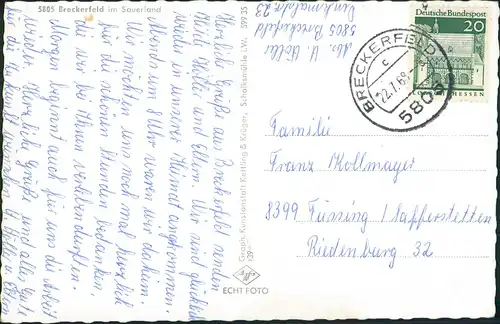 5805 Breckerfeld im Sauerland
Herzliche Grüße aus Breckerfeld senden
Eltern. Wir sind glücklich
wieder in unserer Heimat angekommen.
Abends um 8 Uhr waren wir daheim.
Wir möchten uns noch mal herzlich
für die schönen Stunden bedanken,
die wir bei Ihnen verleben durften.
Morgen beginnt auch für uns die Arbeit
wieder. Herzliche Grüße und alles Gute
für die
Graph. Kunstanstalt Kettling & Krüger, Schalksmühle i.W. 599 35
129
ECHT FOTO
Abs. U.
5805 Breckerfeld
Denkmalstr. 23
Deutsche Bundespost
20
HESSEN
BRECKERFELD
c
22.7.69
5805
Familie
Franz Kollmayer
8399 Füssing / Safferstetten
Riedenburg 32